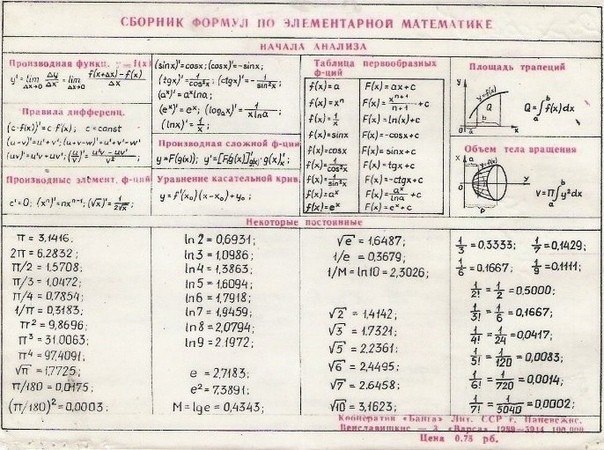 СБОРНИК ФОРМУЛ ПО ЭЛЕМЕНТАРНОЙ МАТЕМАТИКЕ
НАЧАЛА АНАЛИЗА
Производная функц. y=f(x)
y'=lim Δx→0 Δy/Δx = lim Δx→0 (f(x+Δx)-f(x))/Δx
Правила дифференц.
(c·f(x))'=c F'(x); c=const
(u-v)'=u'+v'; (u+v-w)'=u'+v'-w'
(uv)'=u'v+uv'; (u/v)'=(u'v-uv')/v²
Производные элемент. ф-ций
c'=0; (xⁿ)'=nxⁿ⁻¹; (√x)'=1/(2√x);
(sinx)'=cosx; (cosx)'=-sinx;
(tgx)'=1/cos²x; (ctgx)'=-1/sin²x;
(aˣ)'=aˣlna;
(eˣ)'=eˣ; (logₐx)'=1/(x lna)
(lnx)'=1/x;
Производная сложной ф-ции
y=F(g(x)); y'=[F(g(x))]'g(x)·g(x)'ₓ
Уравнение касательной крив.
y=f'(x₀)(x-x₀)+y₀;
Таблица первообразных
ф-ций
f(x)=a F(x)=ax+c
f(x)=xⁿ F(x)=xⁿ⁺¹/(n+1)+c
f(x)=1/x F(x)=ln(x)+c
f(x)=sinx F(x)=-cosx+c
f(x)=cosx F(x)=sinx+c
f(x)=1/cos²x F(x)=tgx+c
f(x)=1/sin²x F(x)=-ctgx+c
f(x)=aˣ F(x)=aˣ/lna+c
f(x)=eˣ F(x)=eˣ+c
Площадь трапеций
y=f(x)
Q
a b x
Q=∫ₐᵇ f(x)dx
Объем тела вращения
y
V=Π∫ₐᵇ y²dx
Некоторые постоянные
π = 3,1416;
2π = 6.2832;
π/2 = 1,5708;
π/3 = 1,0472;
π/4 = 0,7854;
1/π = 0,3183;
π² = 9,8696;
π³ = 31.0063;
π⁴ = 97.4091;
√π = 1,7725;
π/180 = 0,0175;
(π/180)² = 0,0003;
ln 2 = 0,6931;
ln 3 = 1,0986;
ln 4 = 1,3863;
ln 5 = 1,6094;
ln 6 = 1,7918;
ln 7 = 1,9459;
ln 8 = 2,0794;
ln 9 = 2.1972;
e = 2,7183;
e² = 7.3891;
M = lg e = 0,4343;
√e = 1,6487;
1/e = 0,3679;
1/M = ln10 = 2,3026;
√2 = 1,4142;
√3 = 1.7321;
√5 = 2,2361;
√6 = 2,4495;
√7 = 2,6458;
√10 = 3,1623;
1/3 = 0.3333; 1/7 = 0,1429;
1/6 = 0,1667; 1/9 = 0,1111;
1/2! = 1/2 = 0,5000;
1/3! = 1/6 = 0,1667;
1/4! = 1/24 = 0,0417;
1/5! = 1/120 = 0,0083;
1/6! = 1/720 = 0,0014;
1/7! = 1/5040 = 0,0002;
Кооператив «Банга» Лит. ССР г. Паневежис.
Цена 0.75 рб.